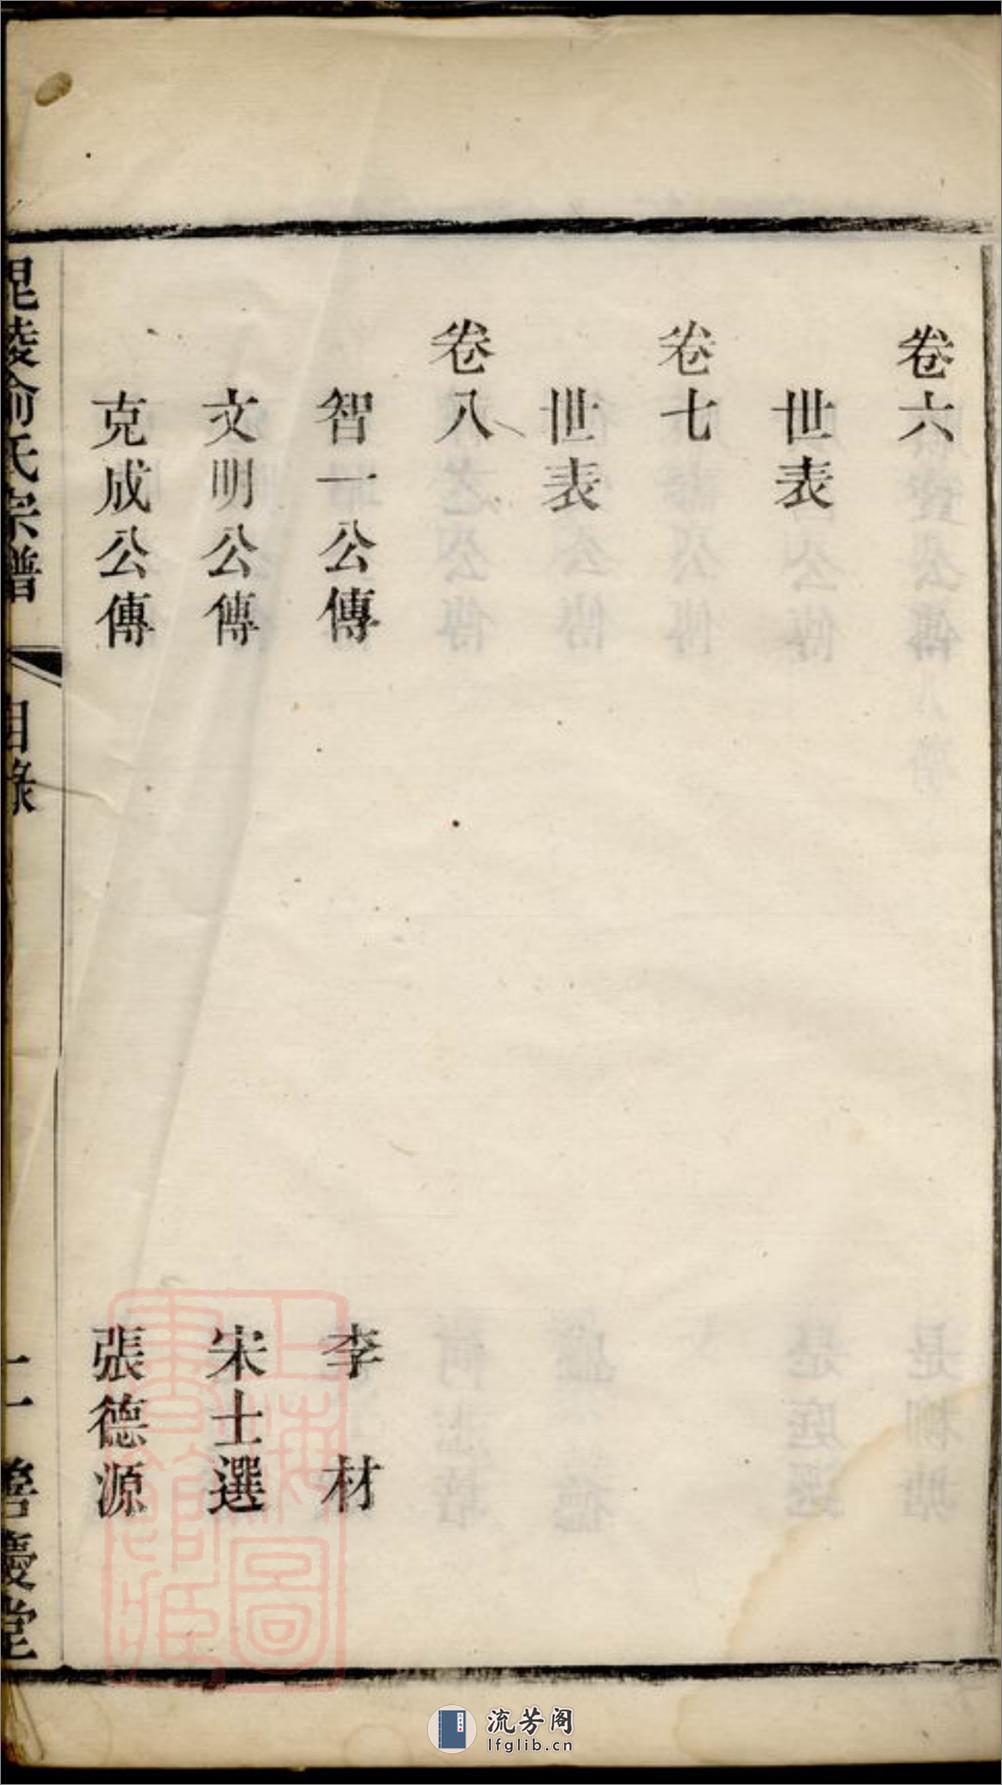 卷六
世表
卷七
世表
卷八
智一公傳 李材
文明公傳 宋士選
克成公傳 張德源
毘陵俞氏宗譜
目錄
二
善慶堂
上海圖書館藏
流芳阁
lfglib.cn